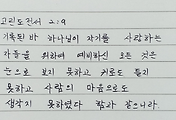 고린도전서 2:9
기록된 바 하나님이 자기를 사랑하는
자들을 위하여 예비하신 모든 것은
눈으로 보지 못하고 귀로도 듣지
못하고 사람의 마음으로도
생각지 못하였다 함과 같으니라.